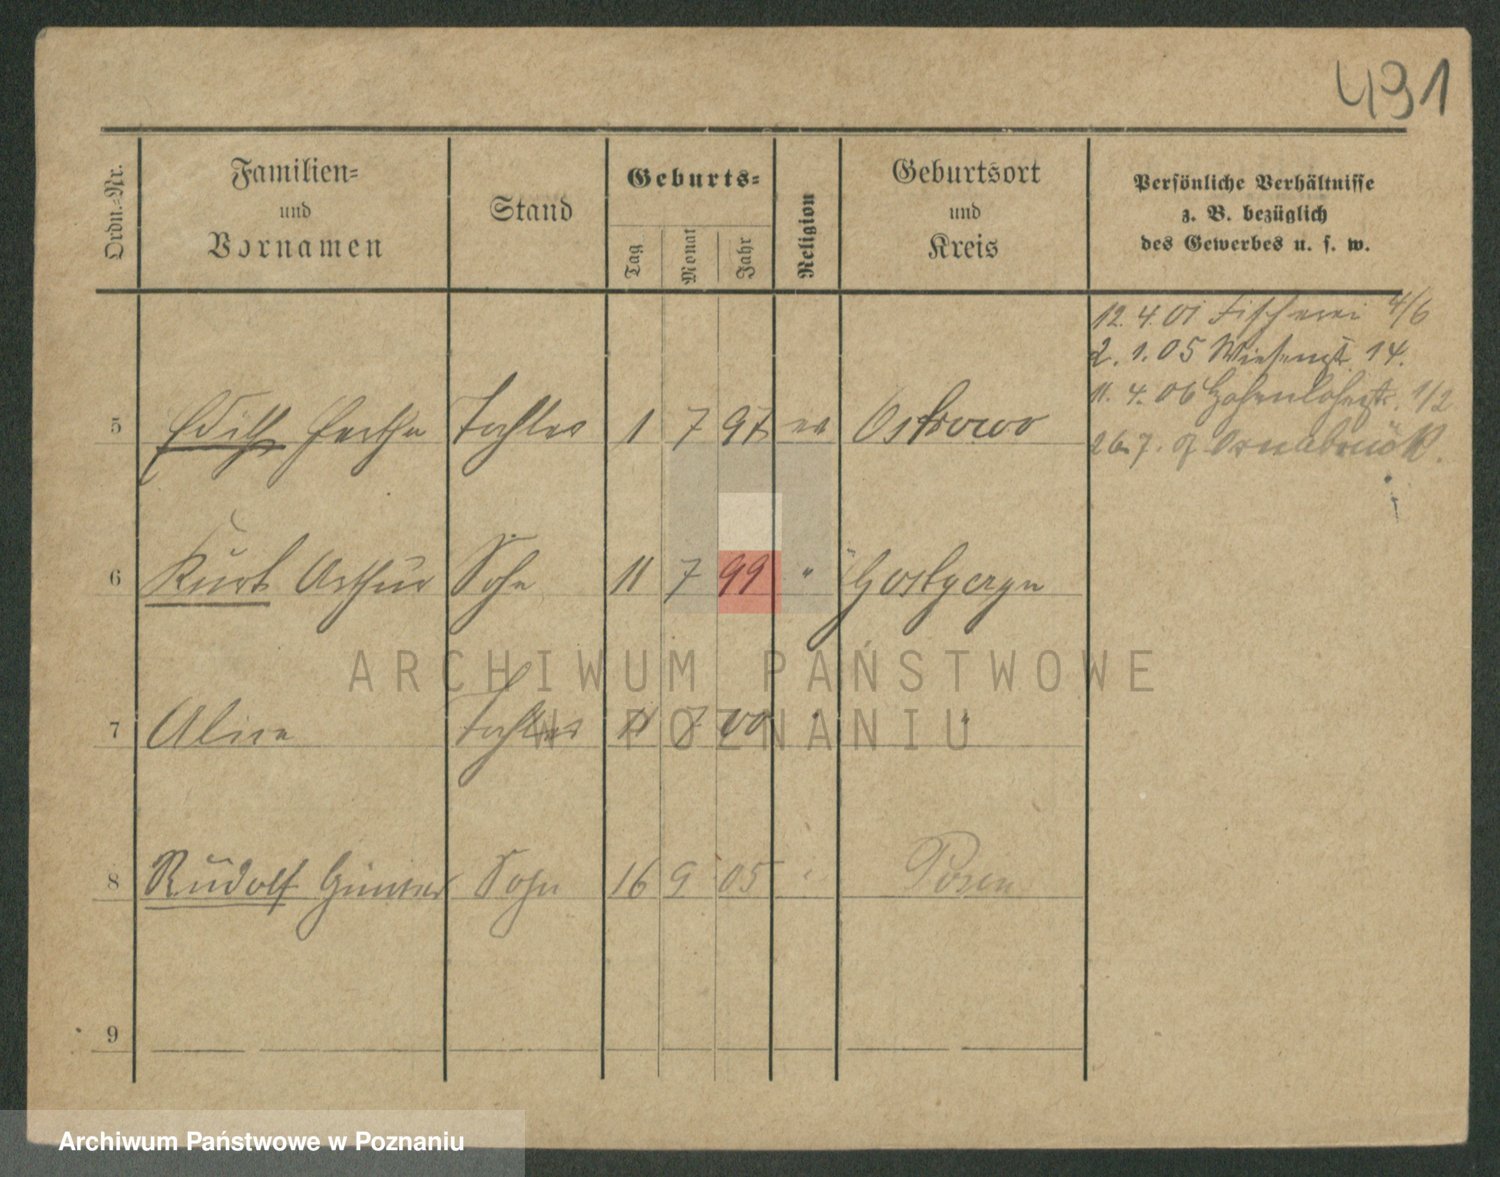 431
Ordn.-Nr.
Familien-
und
Vornamen
Stand
Geburts-
Tag
Monat
Jahr
Religion
Geburtsort
und
Kreis
Persönliche Verhältnisse
z. B. bezüglich
des Gewerbes u. s. w.
12. 4. 01 Fischerei 4/6
2. 1. 05 Wiesenstr. 14.
11. 4. 06 Hohenlohestr. 1/2
26. 7. Osnabrück.
5 Edith Hertha Tochter 1 7 97 ev Ostrowo
6 Kurt Arthur Sohn 11 7 99 " Gostyczyn
7 Alice Tochter 11 7 00 " "
8 Rudolf Günter Sohn 16 9 05 " Posen
9
ARCHIWUM PAŃSTWOWE
W POZNANIU
Archiwum Państwowe w Poznaniu